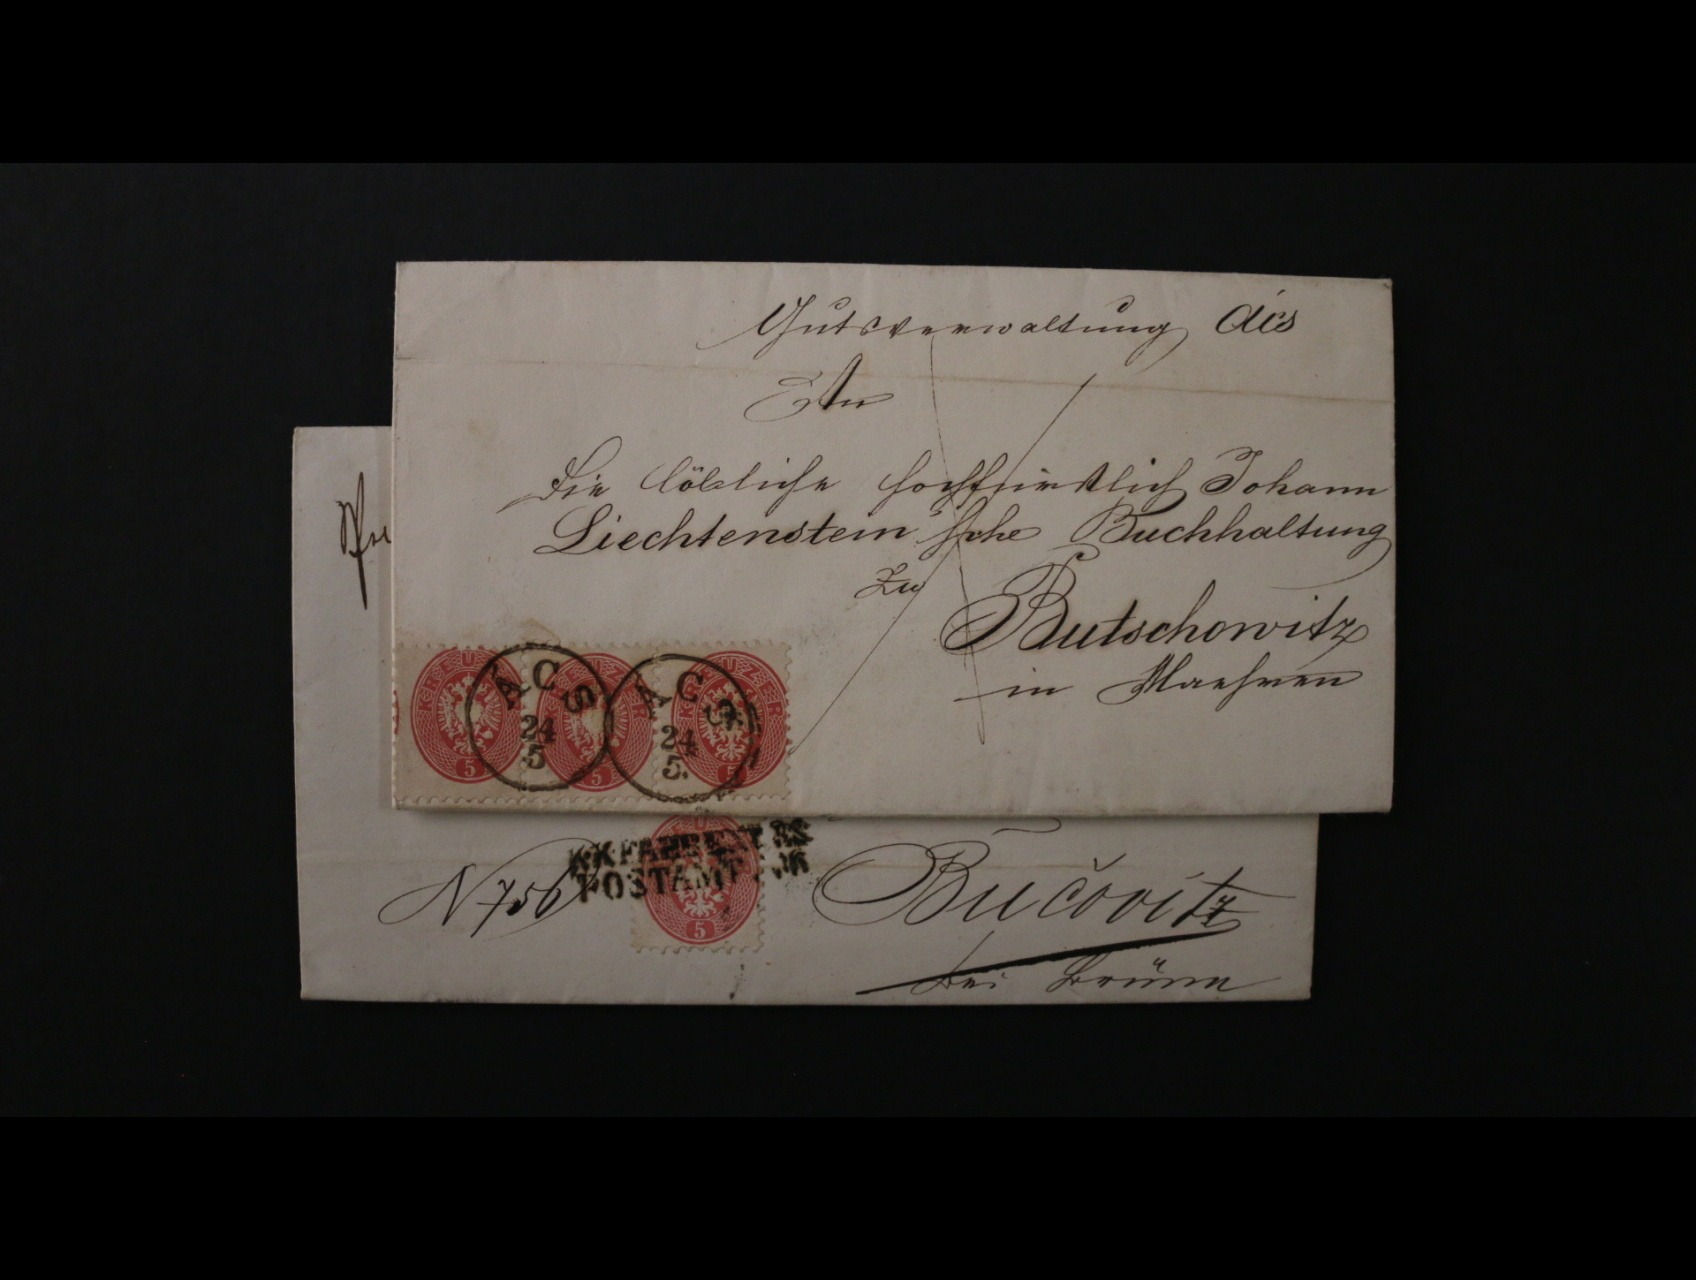 Gutsverwaltung Ács
An
die löbliche hochfürstlich Johann
Liechtenstein'sche Buchhaltung
zu
Butschowitz
in Maehren
KREUZER
5
KREUZER
5
KREUZER
5
ÁCS
24
5
ÁCS
24
5.
K.K. FAHRENDES
POSTAMT
5
N 756
Bučovitz
bei Brünn